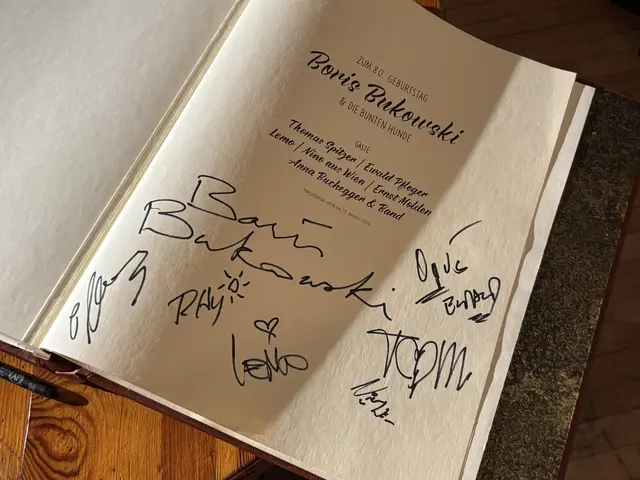 ZUM 80. GEBURTSTAG
Boris Bukowski
& DIE BUNTEN HUNDE
GÄSTE
Thomas Spitzer | Ewald Pfleger
Lemo | Nino aus Wien | Ernst Molden
Anna Buchegger & Band
Boris
Bukowski
RAY
LEMO
EWALD
TOM